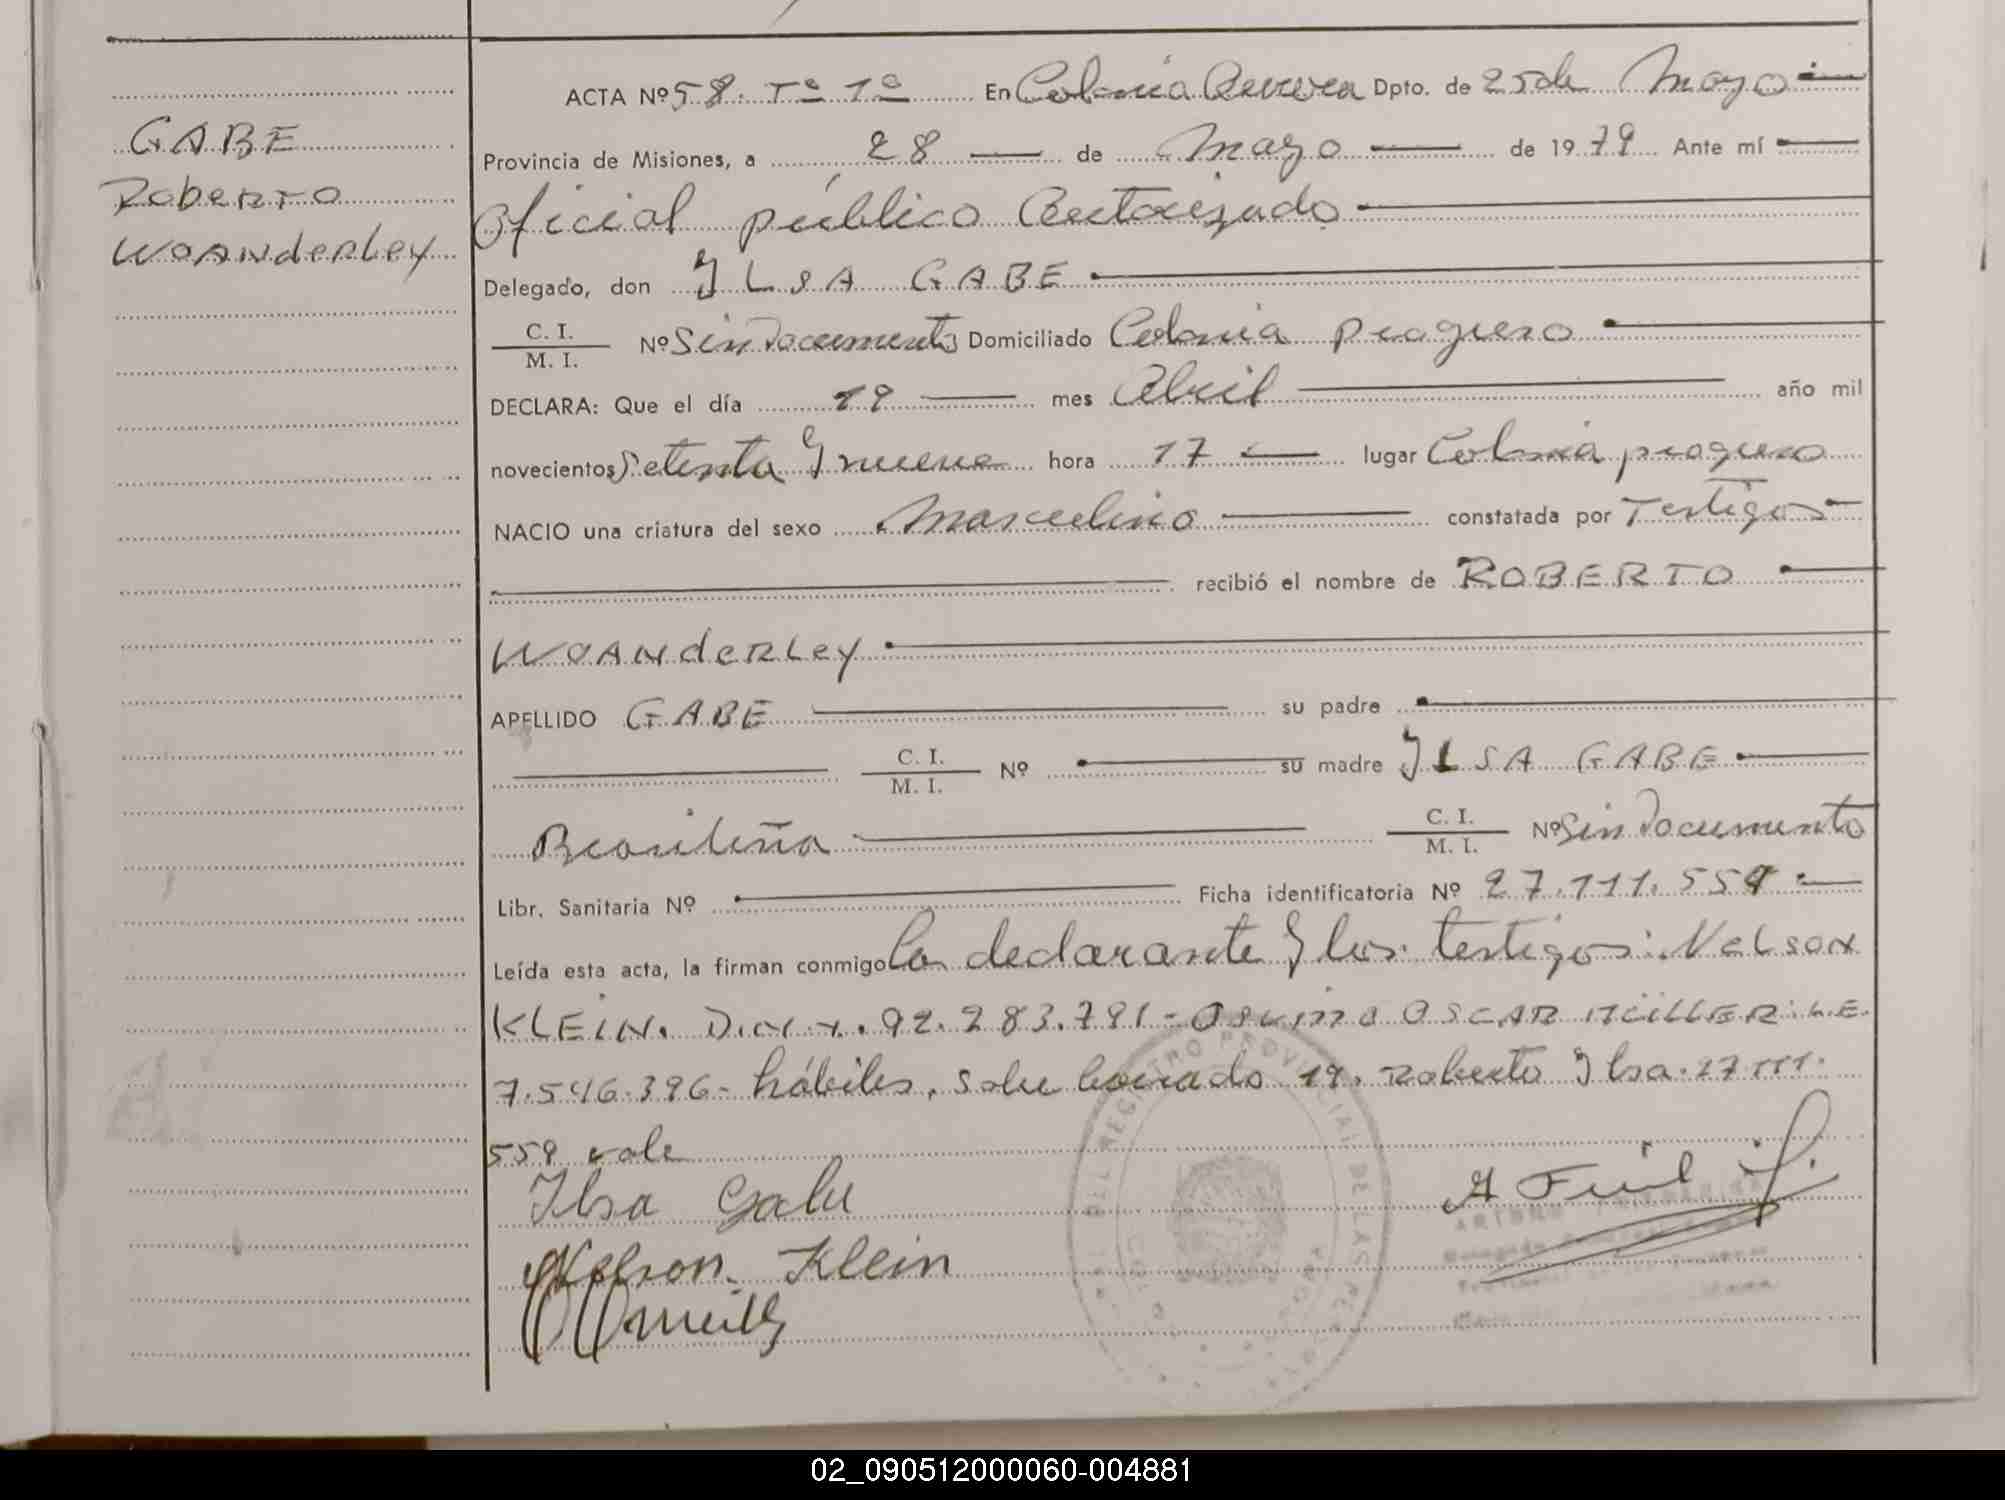 ACTA Nº 58. Tº 1º En Colonia Aurora Dpto. de 25 de Mayo
GABE
Roberto
WOANderLey
Provincia de Misiones, a 28 de Mayo de 1979 Ante mí
Oficial público Autorizado
Delegado, don YLSA GABE
C. I.
M. I.
Nº Sin Documento Domiciliado Colonia progreso
DECLARA: Que el día 19 mes Abril año mil
novecientos Setenta y nueve hora 17 lugar Colonia progreso
NACIO una criatura del sexo Masculino constatada por Testigos
recibió el nombre de ROBERTO
WOANdeRLey
APELLIDO GABE su padre
C. I.
M. I.
Nº su madre YLSA GABE
Brasileña
C. I.
M. I.
Nº Sin Documento
Libr. Sanitaria Nº Ficha identificatoria Nº 27.111.559
Leída esta acta, la firman conmigo La declarante y los testigos: Nelson
KLEIN. D.N.I. 92.283.791 - OSCAR MÜLLER: L.E.
7.546.396 - hábiles, sobre borrado 19. Roberto Ylsa. 27.111.
559 vale
Ylsa Gabe
Nelson Klein
REGISTRO PROVINCIAL DE LAS PERSONAS
02_090512000060-004881